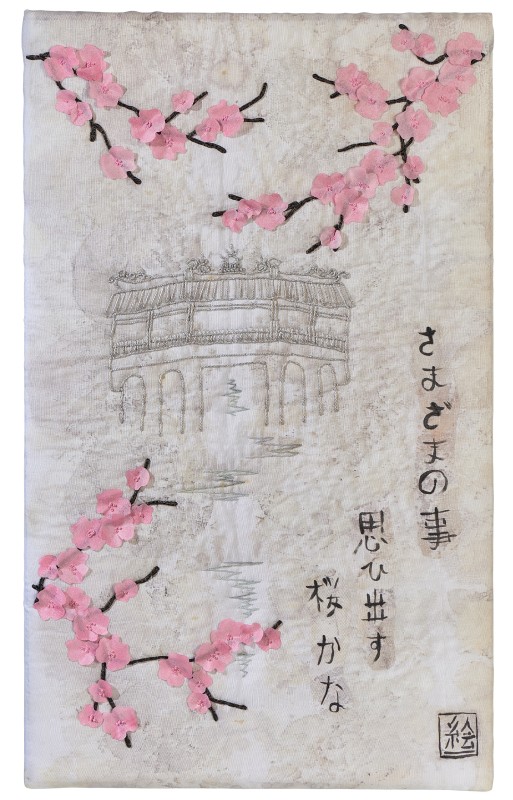 さまざまの事
思ひ出す
桜かな
絵